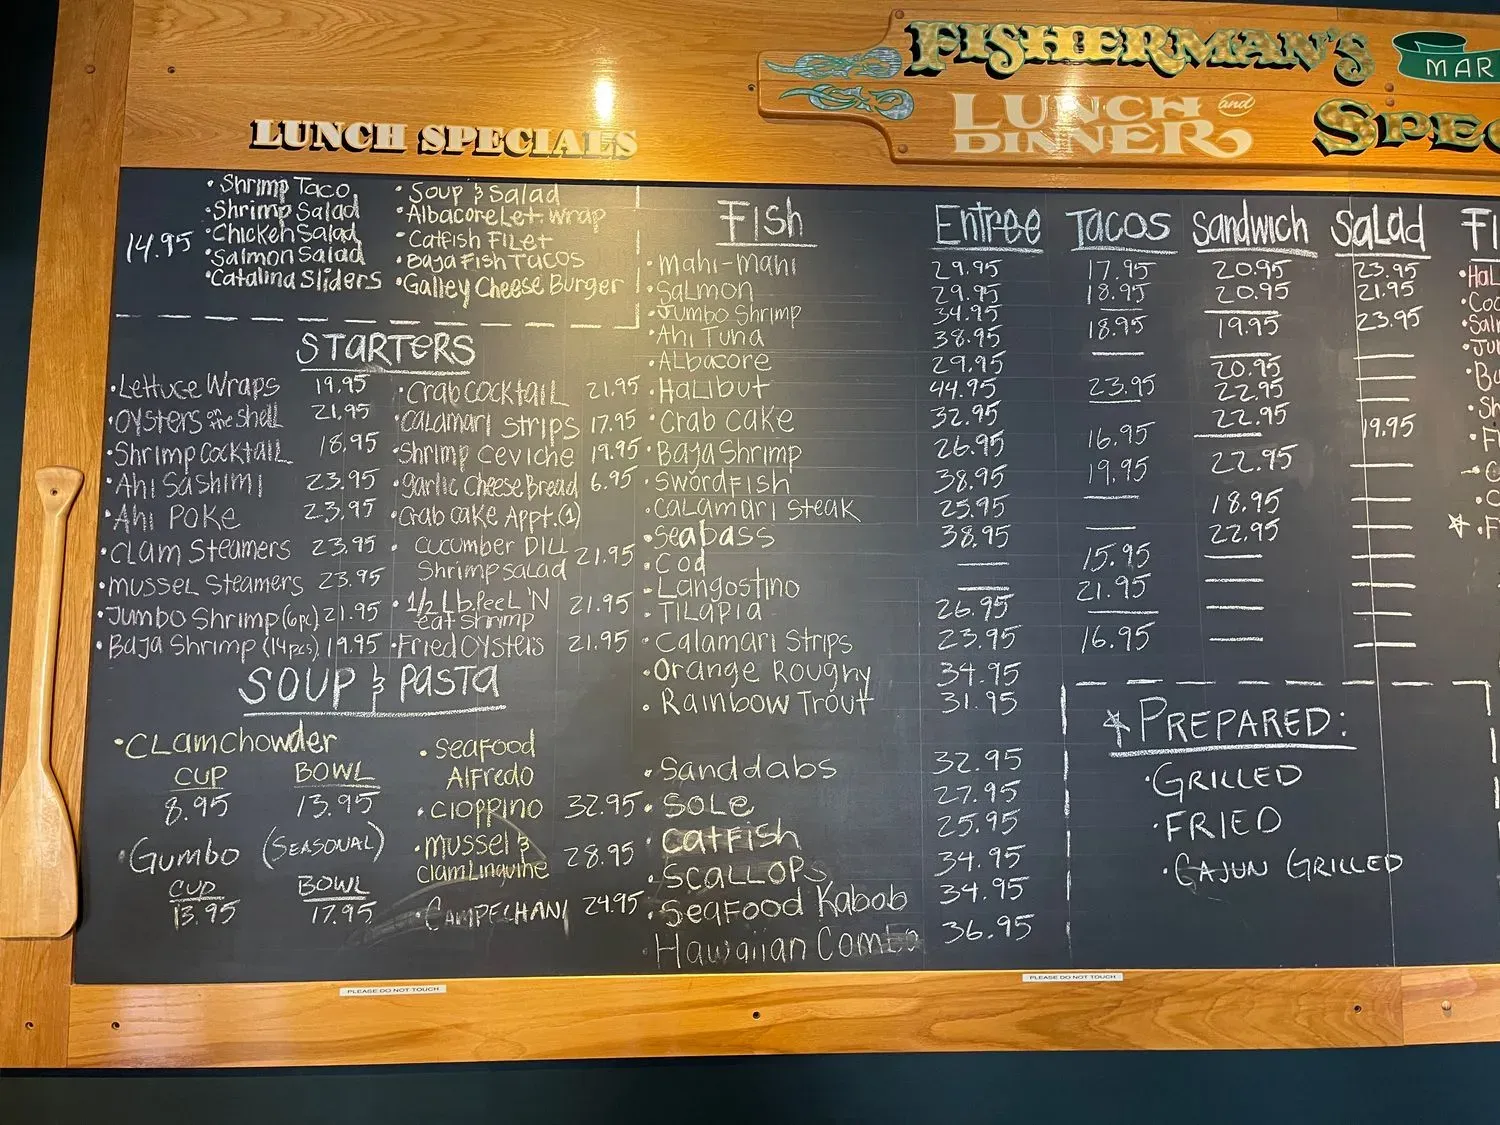 FISHERMAN'S
MAR
LUNCH and DINNER
SPEC
LUNCH SPECIALS
14.95
• Shrimp Taco
• Shrimp Salad
• Chicken Salad
• Salmon Salad
• Catalina Sliders
• Soup & Salad
• Albacore Let. Wrap
• Catfish Filet
• Baja Fish Tacos
• Galley Cheese Burger
STARTERS
• Lettuce Wraps 19.95
• Oysters on the Shell 21.95
• Shrimp Cocktail 18.95
• Ahi Sashimi 23.95
• Ahi Poke 23.95
• Clam Steamers 23.95
• Mussel Steamers 23.95
• Jumbo Shrimp (6pc) 21.95
• Baja Shrimp (14pcs) 19.95
• Crab Cocktail 21.95
• Calamari Strips 17.95
• Shrimp Ceviche 19.95
• Garlic Cheese Bread 6.95
• Crab Cake Appt. (1)
• Cucumber Dill
Shrimp Salad 21.95
• 1/2 Lb. Peel 'N
eat Shrimp 21.95
• Fried Oysters 21.95
SOUP & PASTA
• Clam Chowder
CUP BOWL
8.95 13.95
• Gumbo (SEASONAL)
CUP BOWL
13.95 17.95
• Seafood
Alfredo
• Cioppino 32.95
• Mussel &
Clam Linguine 28.95
• CAMPECHANI 24.95
Fish
• Mahi-Mahi
• Salmon
• Jumbo Shrimp
• Ahi Tuna
• Albacore
• Halibut
• Crab Cake
• Baja Shrimp
• Swordfish
• Calamari Steak
• Seabass
• Cod
• Langostino
• Tilapia
• Calamari Strips
• Orange Roughy
• Rainbow Trout
• Sanddabs
• Sole
• Catfish
• Scallops
• Seafood Kabob
• Hawaiian Combo
Entree
29.95
29.95
34.95
38.95
29.95
44.95
32.95
26.95
38.95
25.95
38.95
26.95
23.95
34.95
31.95
32.95
27.95
25.95
34.95
34.95
36.95
Tacos
17.95
18.95
18.95
23.95
16.95
19.95
15.95
21.95
16.95
Sandwich
20.95
20.95
19.95
20.95
22.95
22.95
22.95
18.95
22.95
Salad
23.95
21.95
23.95
19.95
PREPARED:
• GRILLED
• FRIED
• CAJUN GRILLED
FI
• Hal
• Coc
• Sal
• Ju
• Ba
• Sh
• F
PLEASE DO NOT TOUCH
PLEASE DO NOT TOUCH